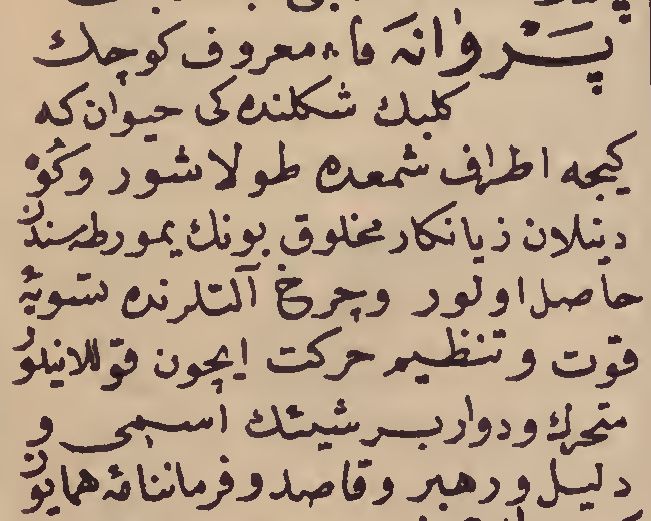 پَرْوَانَه فا٠ معروف كوچك
كلبك شكلنده كی حيوان كه
كيجه اطراف شمعده طولاشور وكُوه
دينلان زيانكار مخلوق بونك يمورطه‌سندن
حاصل اولور وچرخ آلتلرنده تسويۀ
قوت و تنظيم حركت ايچون قوللانيلور
متحرك و دوار بر شيئك اسمی و
دليل و رهبر و قاصد و فرماننامۀ همايون